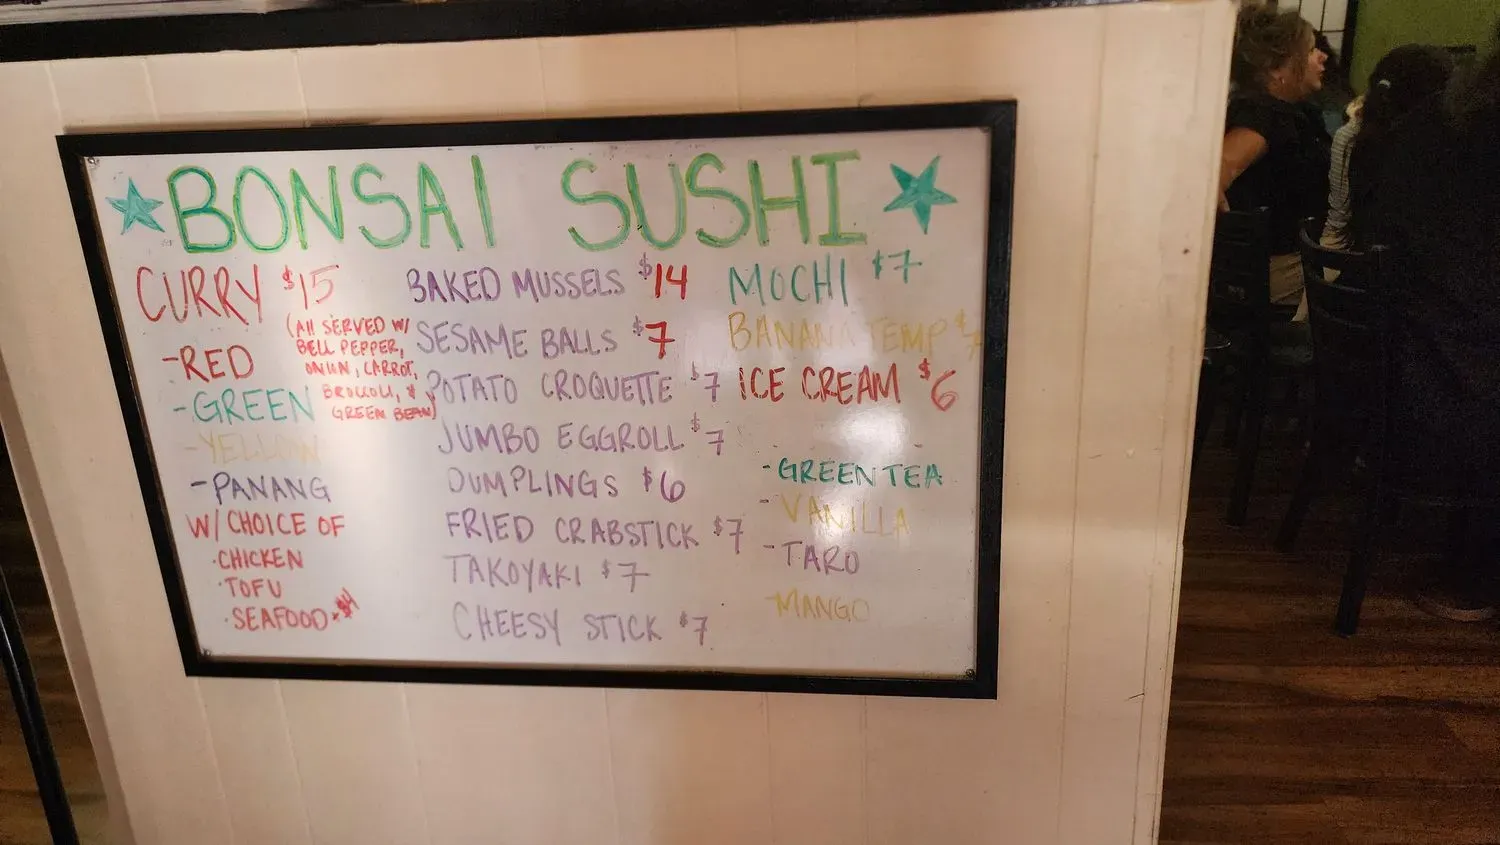 BONSAI SUSHI
CURRY $15
(All SERVED W/
BELL PEPPER,
ONION, CARROT,
BROCCOLI, &
GREEN BEAN)
-RED
-GREEN
-YELLOW
-PANANG
W/ CHOICE OF
·CHICKEN
·TOFU
·SEAFOOD +$4
BAKED MUSSELS $14
SESAME BALLS $7
POTATO CROQUETTE $7
JUMBO EGGROLL $7
DUMPLINGS $6
FRIED CRABSTICK $7
TAKOYAKI $7
CHEESY STICK $7
MOCHI $7
BANANA TEMP $7
ICE CREAM $6
-GREEN TEA
-VANILLA
-TARO
-MANGO